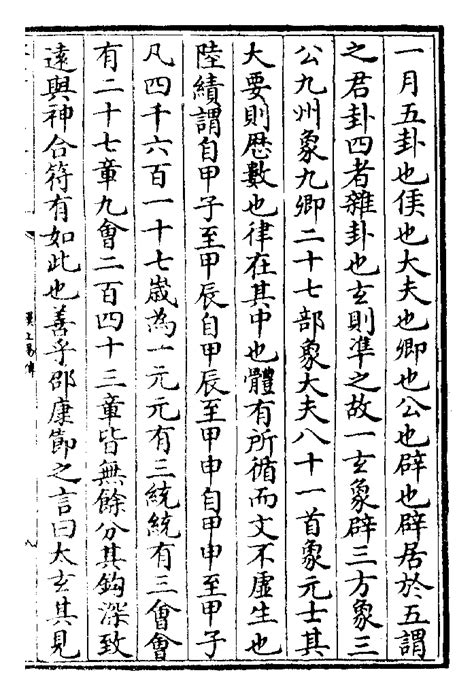 一月五卦也侯也大夫也卿也公也辟也辟居於五謂
之君卦四者雜卦也玄則準之故一玄象辟三方象三
公九州象九卿二十七部象大夫八十一首象元士其
大要則厯數也律在其中也體有所循而文不虛生也
陸績謂自甲子至甲辰自甲辰至甲申自甲申至甲子
凡四千六百一十七歲為一元元有三統統有三會會
有二十七章九會二百四十三章皆無餘分其鈎深致
遠與神合符有如此也善乎邵康節之言曰太玄其見
漢上易傳
八